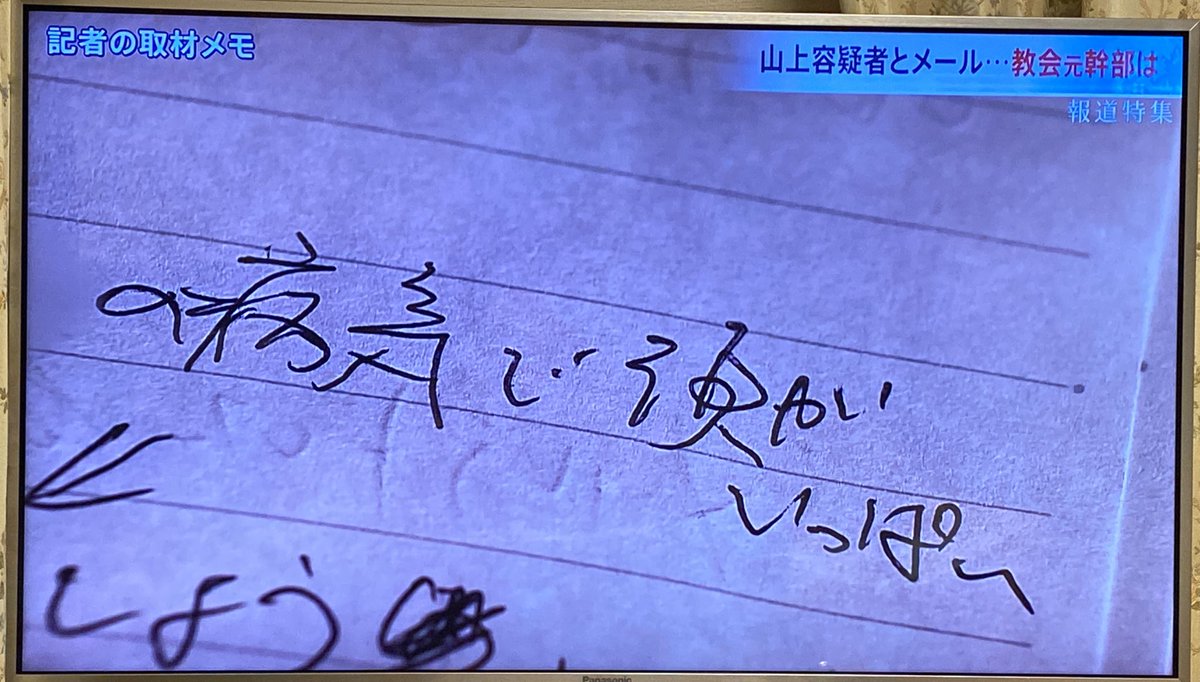 記者の取材メモ
山上容疑者とメール…教会元幹部は
報道特集
の病気で頭が
いっぱい
しょう
Panasonic